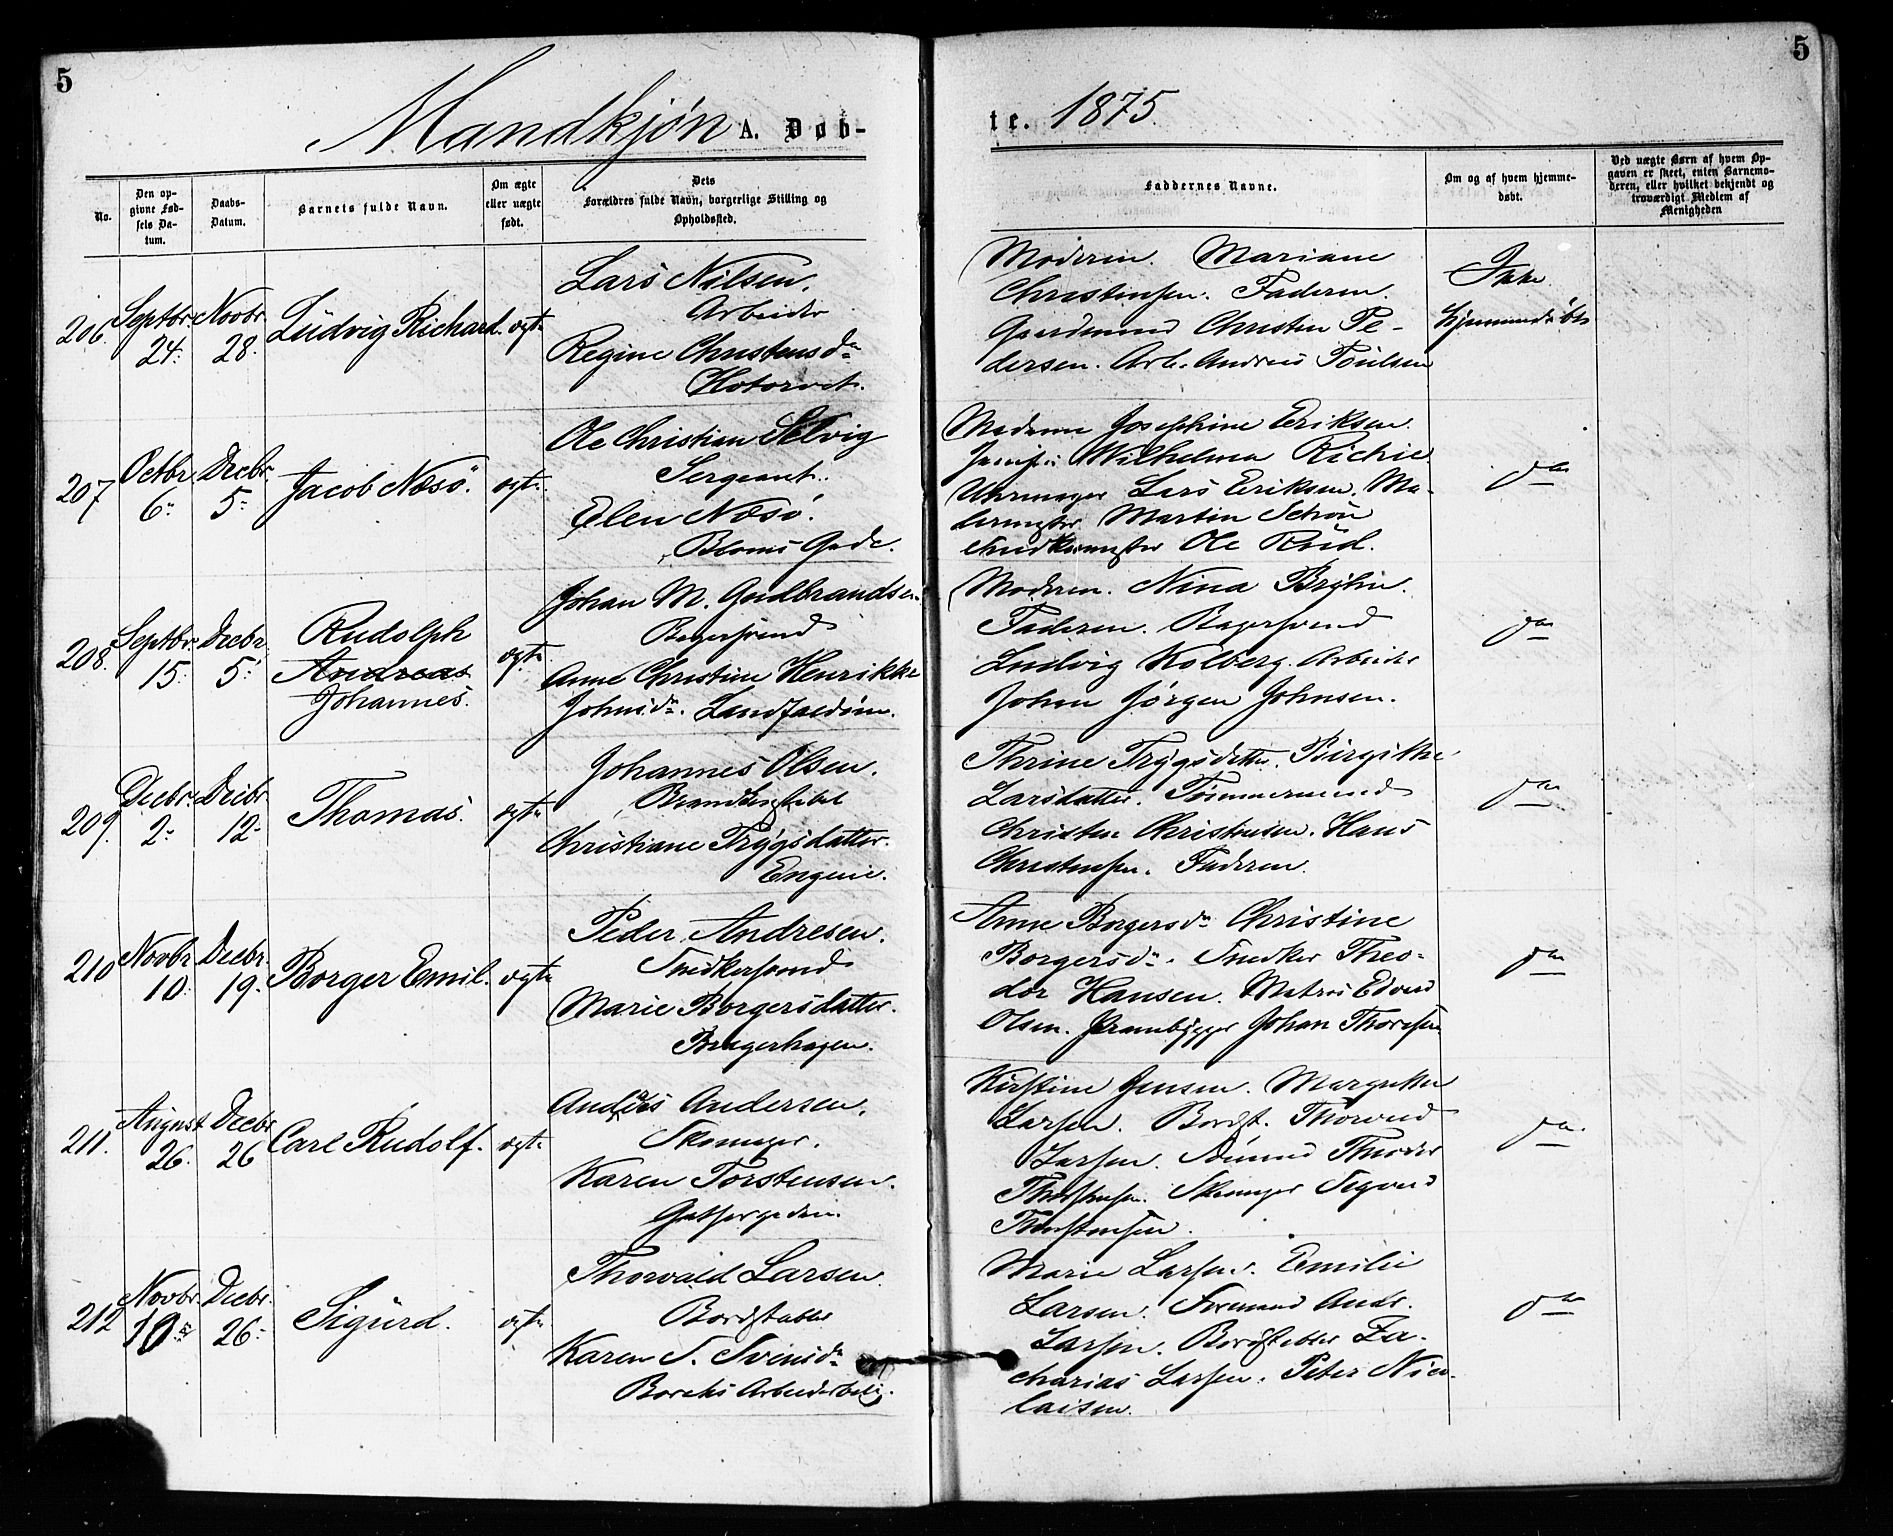 5
5
Mandkjøn A. Døb-
te. 1875.
No.
Den op-
givne Fød-
sels Da-
tum.
Daabs-
Datum.
Barnets fulde Navn.
Om ægte
eller uægte
født.
Dets
Forældres fulde Navn, borgerlige Stilling og
Opholdssted.
Faddernes Navne.
Om og af hvem hjemme-
døbt.
Ved uægte Børn af hvem Op-
gaven er skeet, enten Barnemo-
deren, eller hvilket bekjendt og
troværdigt Medlem af
Menigheden
206.
Septbr.
24.
Novbr.
28.
Ludvig Richard.
ægte
Lars Nilsen.
Arbeider
Regine Christensdr
Hotorvet.
Moderen. Mariane
Christensen. Faderen.
Gaardmand Christen Pe-
dersen. Arb. Andreas Poulsen
Ikke
hjemmedøbt
207
Octbr
6.
Decbr.
5.
Jacob Næsø.
ægte
Ole Christian Selvig
Sergeant.
Elen Næsø.
Bloms Gade.
Madame Josephine Eriksen.
Wilhelmea Richie
Uhrmager Lars Eriksen. Ma-
lermester Martin Schøn
Snedkermester Ole Røed.
do
208.
Septbr.
15.
Decbr.
5.
Rudolph
Andreas
Johannes.
ægte
Johan M. Gudbrandsen
Bagersvend
Anne Christine Henrikke
Johnsdr. Landfaldøen.
Moderen. Nina Brylin.
Faderen. Bagersvend
Ludvig Kolberg. Arbeider
Johan Jørgen Johnsen.
do
209.
Decbr.
2.
Decbr.
12.
Thomas.
ægte
Johannes Olsen.
Brandkonstabel
Christiane Trygsdatter.
Engene.
Thrine Trygsdatter. Birgitte
Larsdatter. Tømmermand
Christen Christensen. Hans
Christensen. Faderen.
do
210
Novbr
10.
Decbr.
19.
Borger Emil.
ægte
Peder Andresen.
Snedkersvend
Marie Borgersdatter.
Bragerhagen.
Anne Borgersdr Christine
Borgersdr. Snedker Theo-
dor Hansen. Matros Edvard
Olsen. Prambygger Johan Thoresen
do
211.
August
26.
Decbr
26
Carl Rudolf.
ægte
Andreas Andersen.
Skomager.
Karen Torstensen.
Kirstine Jensen. Margrethe
Larsen. Bordst. Thorvald
Larsen. Sømand Theodor
Thorstensen. Skomager Sigvard
Thorstensen.
do
212
Novbr.
10
Decbr.
26
Sigurd.
ægte
Thorvald Larsen.
Bordstabler
Karen S. Svensdr
Borchs Arbeiderbolig.
Marie Larsen. Emilie
Larsen. Formand Andr.
Larsen. Bordstabler Za-
charias Larsen. Peter Nico-
laisen.
do